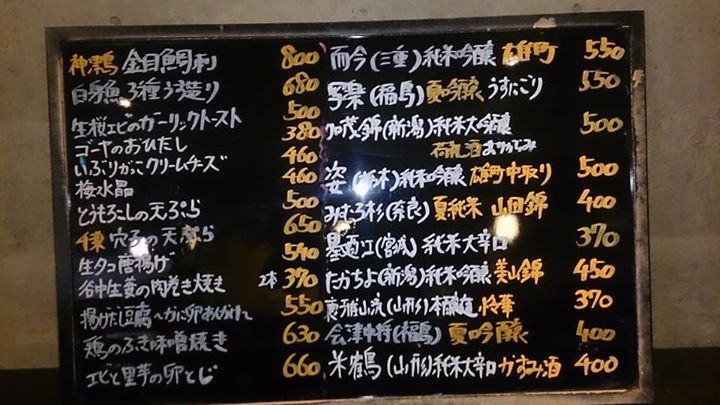 神津島 金目鯛刺 800
白身魚3種づ造り 680
生桜エビのガーリックトースト 500
ゴーヤのおひたし 380
いぶりがっこクリームチーズ 460
梅水晶 460
とうもろこしの天ぷら 500
穴子の天ぷら 650
生タコ唐揚げ 540
谷中生姜の肉巻き焼き 2本 370
揚げだし豆腐 550
鶏のふき味噌焼き 630
エビと里芋の卵とじ 660
而今(三重)純米吟醸 雄町 550
写楽(福島)夏吟醸 うすにごり 550
加茂錦(新潟)純米大吟醸 500
荷札酒
姿(栃木)純米吟醸 雄町中取り 500
みむろ杉(奈良)夏純米 山田錦 400
墨廼江(宮城)純米大辛口 370
たかちよ(新潟)純米吟醸 美山錦 450
裏雅山流(山形)本醸造 怜華 370
会津中将(福島)夏吟醸 400
米鶴(山形)純米大辛口 かすみ酒 400